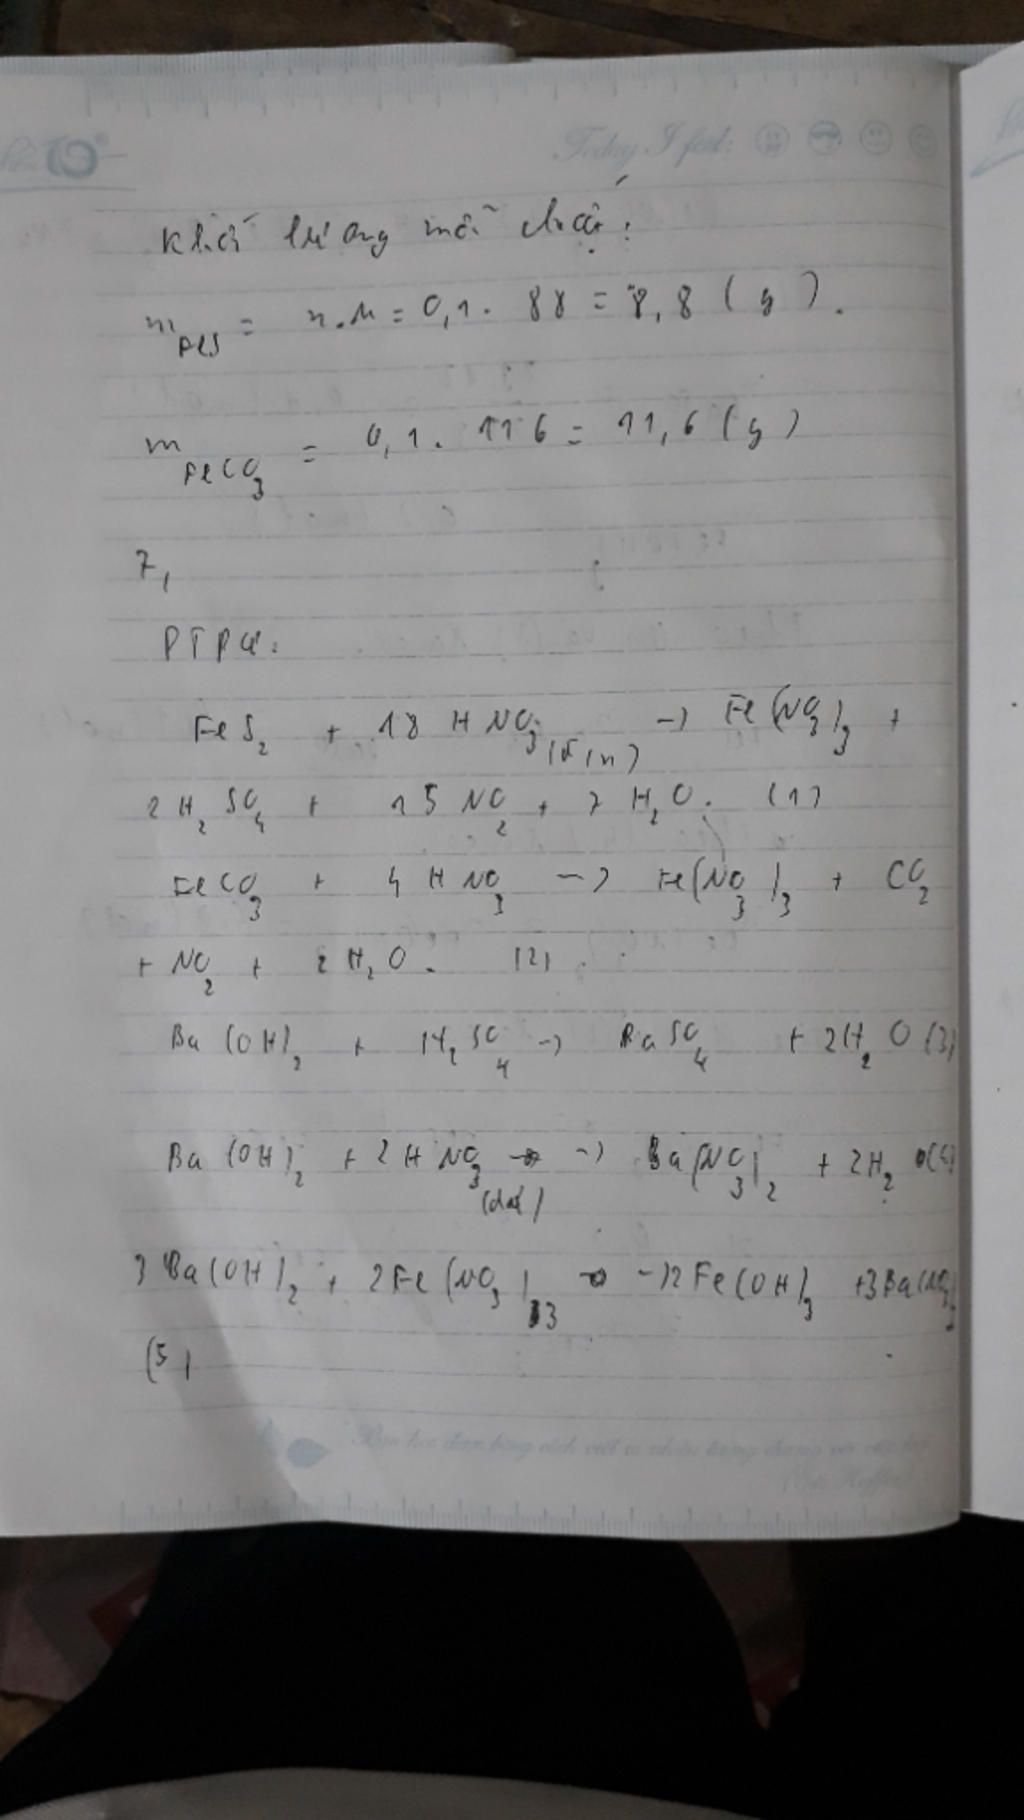 Today I feel:
Khối lượng mỗi chất:
m FeS = n.M = 0,1 . 88 = 8,8 (g).
m FeCO3 = 0,1 . 116 = 11,6 (g)
7,
PTPƯ:
FeS2 + 18 HNO3 (đ,n) -> Fe(NO3)3 +
2 H2SO4 + 15 NO2 + 7 H2O. (1)
FeCO3 + 4 HNO3 -> Fe(NO3)3 + CO2
+ NO2 + 2 H2O. (2)
Ba(OH)2 + H2SO4 -> BaSO4 + 2H2O (3)
Ba(OH)2 + 2HNO3 (dư) -> Ba(NO3)2 + 2H2O (4)
3Ba(OH)2 + 2Fe(NO3)3 -> 2Fe(OH)3 + 3Ba(NO3)2
(5)